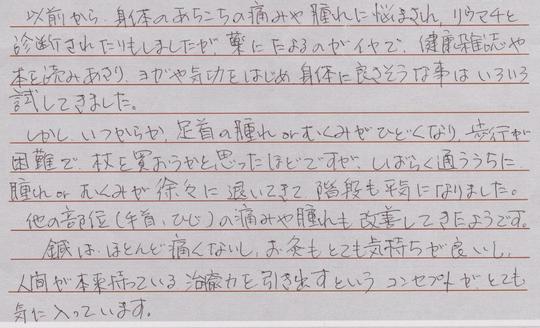 以前から、身体のあちこちの痛みや腫れに悩まされ、リウマチと
診断されたりもしましたが、薬にたよるのがイヤで、健康雑誌や
本を読みあさり、ヨガや気功をはじめ身体に良さそうな事はいろいろ
試してきました。
しかし、いつからか、足首の腫れorむくみがひどくなり、歩行が
困難で、杖を買おうかと思ったほどですが、しばらく通ううちに、
腫れorむくみが徐々に退いてきて階段も平気になりました。
他の部位(手首、ひじ)の痛みや腫れも改善してきたようです。
鍼は、ほとんど痛くないし、お灸もとても気持ちが良いし、
人間が本来持っている治癒力を引き出すというコンセプトが、とても
気に入っています。